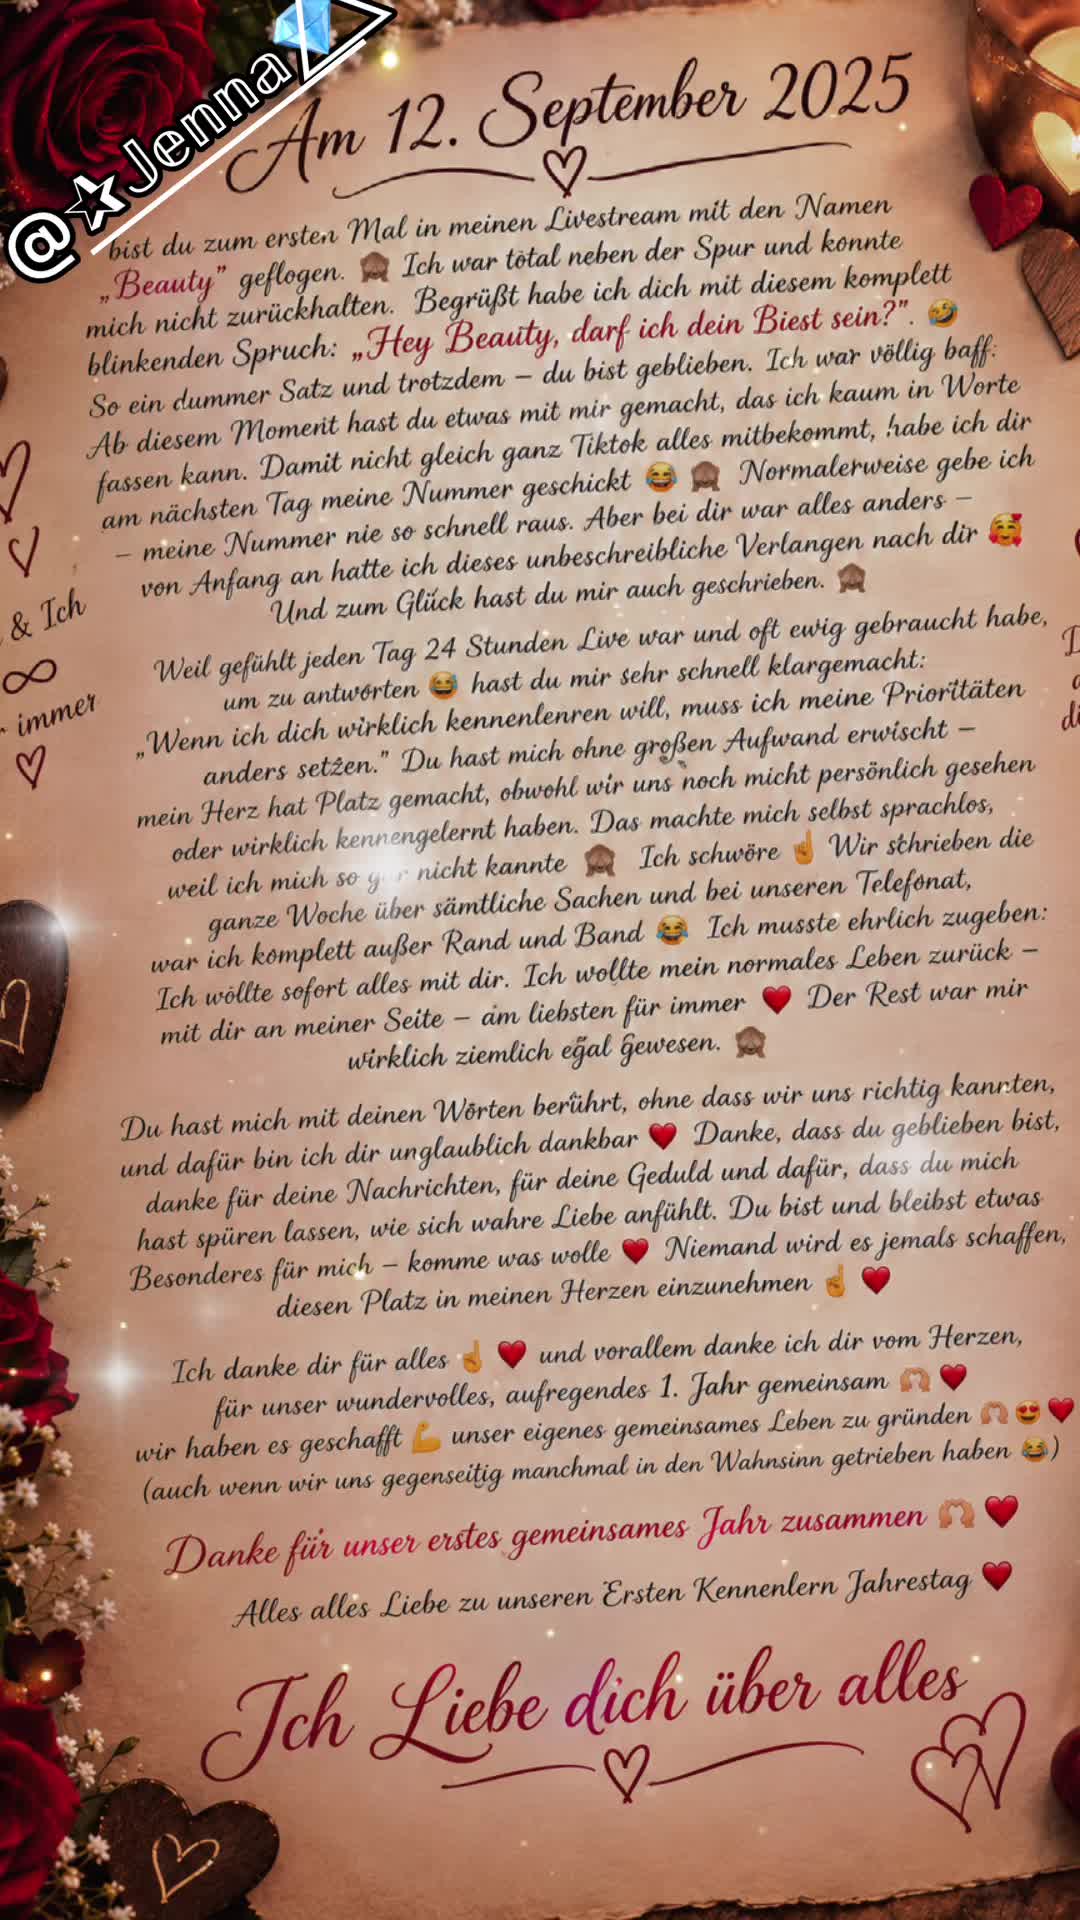 @☆Jenna💎
Am 12. September 2025
bist du zum ersten Mal in meinen Livestream mit den Namen
„Beauty" geflogen. 🙈 Ich war total neben der Spur und konnte
mich nicht zurückhalten. Begrüßt habe ich dich mit diesem komplett
blinkenden Spruch: „Hey Beauty, darf ich dein Biest sein?". 🤣
So ein dummer Satz und trotzdem – du bist geblieben. Ich war völlig baff:
Ab diesem Moment hast du etwas mit mir gemacht, das ich kaum in Worte
fassen kann. Damit nicht gleich ganz Tiktok alles mitbekommt, habe ich dir
am nächsten Tag meine Nummer geschickt 😂 🙈 Normalerweise gebe ich
– meine Nummer nie so schnell raus. Aber bei dir war alles anders –
von Anfang an hatte ich dieses unbeschreibliche Verlangen nach dir 🥰
Und zum Glück hast du mir auch geschrieben. 🙈
Weil gefühlt jeden Tag 24 Stunden Live war und oft ewig gebraucht habe,
um zu antworten 😅 hast du mir sehr schnell klargemacht:
„Wenn ich dich wirklich kennenlenren will, muss ich meine Prioritäten
anders setzen." Du hast mich ohne großen Aufwand erwischt –
mein Herz hat Platz gemacht, obwohl wir uns noch micht persönlich gesehen
oder wirklich kennengelernt haben. Das machte mich selbst sprachlos,
weil ich mich so gar nicht kannte 🙈 Ich schwöre ☝️ Wir schrieben die
ganze Woche über sämtliche Sachen und bei unseren Telefonat,
war ich komplett außer Rand und Band 😂 Ich musste ehrlich zugeben:
Ich wollte sofort alles mit dir. Ich wollte mein normales Leben zurück –
mit dir an meiner Seite – am liebsten für immer ♥️ Der Rest war mir
wirklich ziemlich egal gewesen. 🙈
Du hast mich mit deinen Wörten berührt, ohne dass wir uns richtig kannten,
und dafür bin ich dir unglaublich dankbar ♥️ Danke, dass du geblieben bist,
danke für deine Nachrichten, für deine Geduld und dafür, dass du mich
hast spüren lassen, wie sich wahre Liebe anfühlt. Du bist und bleibst etwas
Besonderes für mich – komme was wolle ♥️ Niemand wird es jemals schaffen,
diesen Platz in meinen Herzen einzunehmen ☝️ ♥️
Ich danke dir für alles ☝️ ♥️ und vorallem danke ich dir vom Herzen,
für unser wundervolles, aufregendes 1. Jahr gemeinsam 🫶 ♥️
wir haben es geschafft 💪 unser eigenes gemeinsames Leben zu gründen 🫶 😍 ♥️
(auch wenn wir uns gegenseitig manchmal in den Wahnsinn getrieben haben 😂)
Danke für unser erstes gemeinsames Jahr zusammen 🫶 ♥️
Alles alles Liebe zu unseren Ersten Kennenlern Jahrestag ♥️
Ich Liebe dich über alles
& Ich
∞
immer